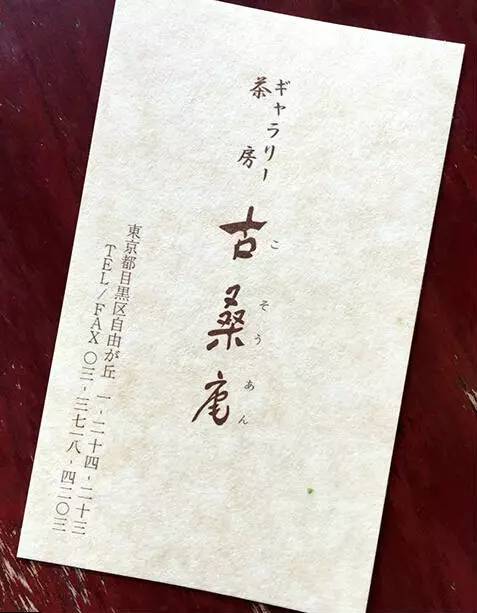 ギャラリー
茶房
古桑庵
こそうあん
東京都目黒区自由が丘 一-二十四-二十三
TEL/FAX 〇三-三七一八-四二〇三